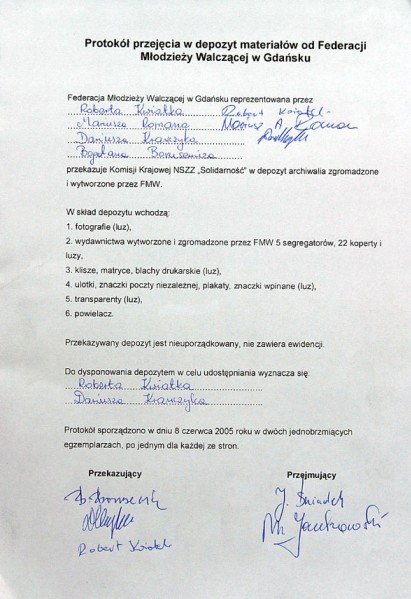 Protokół przejęcia w depozyt materiałów od Federacji
Młodzieży Walczącej w Gdańsku
Federacja Młodzieży Walczącej w Gdańsku reprezentowana przez
Roberta Kwiatka Robert Kwiatek
Mariusza Romana Mariusz A. Roman
Dariusza Krawczyka
Bogdana Borusewicza
przekazuje Komisji Krajowej NSZZ „Solidarność” w depozyt archiwalia zgromadzone
i wytworzone przez FMW.
W skład depozytu wchodzą:
1. fotografie (luz),
2. wydawnictwa wytworzone i zgromadzone przez FMW 5 segregatorów, 22 koperty i
luzy,
3. klisze, matryce, blachy drukarskie (luz),
4. ulotki, znaczki poczty niezależnej, plakaty, znaczki wpinane (luz),
5. transparenty (luz),
6. powielacz.
Przekazywany depozyt jest nieuporządkowany, nie zawiera ewidencji.
Do dysponowania depozytem w celu udostępniania wyznacza się:
Roberta Kwiatka
Dariusza Krawczyka
Protokół sporządzono w dniu 8 czerwca 2005 roku w dwóch jednobrzmiących
egzemplarzach, po jednym dla każdej ze stron.
Przekazujący Przejmujący
J. Śniadek
Jankowski
Robert Kwiatek